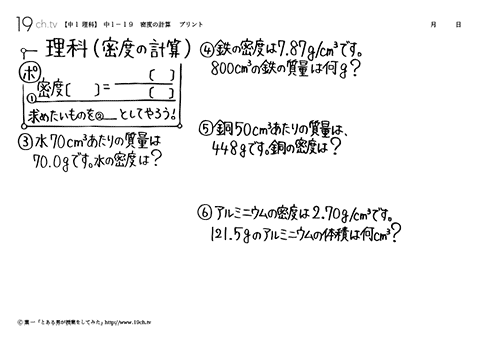 19ch.tv 【中1 理科】 中1-19 密度の計算 プリント 月 日
理科(密度の計算)
ポ
密度[ ]= [ ] / [ ]
①
求めたいものを②__としてやろう!
③水70cm³あたりの質量は
70.0gです。水の密度は?
④鉄の密度は7.87g/cm³です。
800cm³の鉄の質量は何g?
⑤銅50cm³あたりの質量は、
448gです。銅の密度は?
⑥アルミニウムの密度は2.70g/cm³です。
121.5gのアルミニウムの体積は何cm³?
©葉一「とある男が授業をしてみた」http://www.19ch.tv